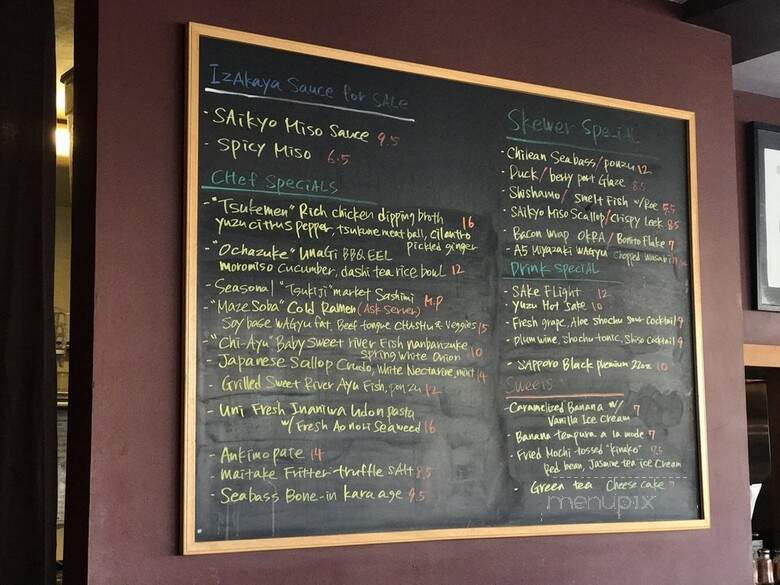 IzAkaya Sauce for SALE
- SAikyo Miso Sauce 9.5
- Spicy Miso 6.5
CHef SpeciALS
- "Tsukemen" Rich chicken dipping broth 16
yuzu citrus pepper, tsukune meat ball, cilantro
pickled ginger
- "Ochazuke" UnaGi BBQ EEL
moromiso cucumber, dashi tea rice bowl 12
- Seasonal "Tsukiji" market Sashimi M.P
- "Maze Soba" Cold Ramen (Ask Server)
Soy base WAGyu fat, Beef tongue CHAsHu & Veggies 15
- "Chi-Ayu" Baby Sweet river Fish nanbanzuke
Spring white Onion 10
- Japanese Sallop Crudo, White Nectarine, mint 14
- Grilled Sweet River Ayu Fish, ponzu 12
- Uni Fresh Inaniwa Udon pasta
w/ Fresh Ao nori Seaweed 16
- Ankimo pate 14
- Maitake Fritter truffle sAlt 8.5
- Seabass Bone-in kara age 9.5
Skewer SpeciAL
- Chilean Seabass/ponzu 12
- Duck/berry port Glaze 8.5
- Shishamo/ Smelt Fish w/Roe 5.5
- SAikyo Miso Scallop/Crispy Leek 8.5
- Bacon Wrap OKRA/ Bonito Flake 7
- A5 Miyazaki WAGyu Chopped wasabi
Drink SpeciAL
- SAke Flight 12
- Yuzu Hot Sake 10
- Fresh grape, Aloe Shochu Sour Cocktail 9
- plum wine, shochu-tonic, Shiso Cocktail 9
- SAPPORO Black premium 22oz 10
Sweets
- Caramelized Banana w/ 7
Vanilla Ice Cream
- Banana tempura a la mode 7
- Fried Mochi-tossed "kinako" 7.5
Red bean, Jasmine tea ice Cream
- Green tea Cheese Cake 7
menupix